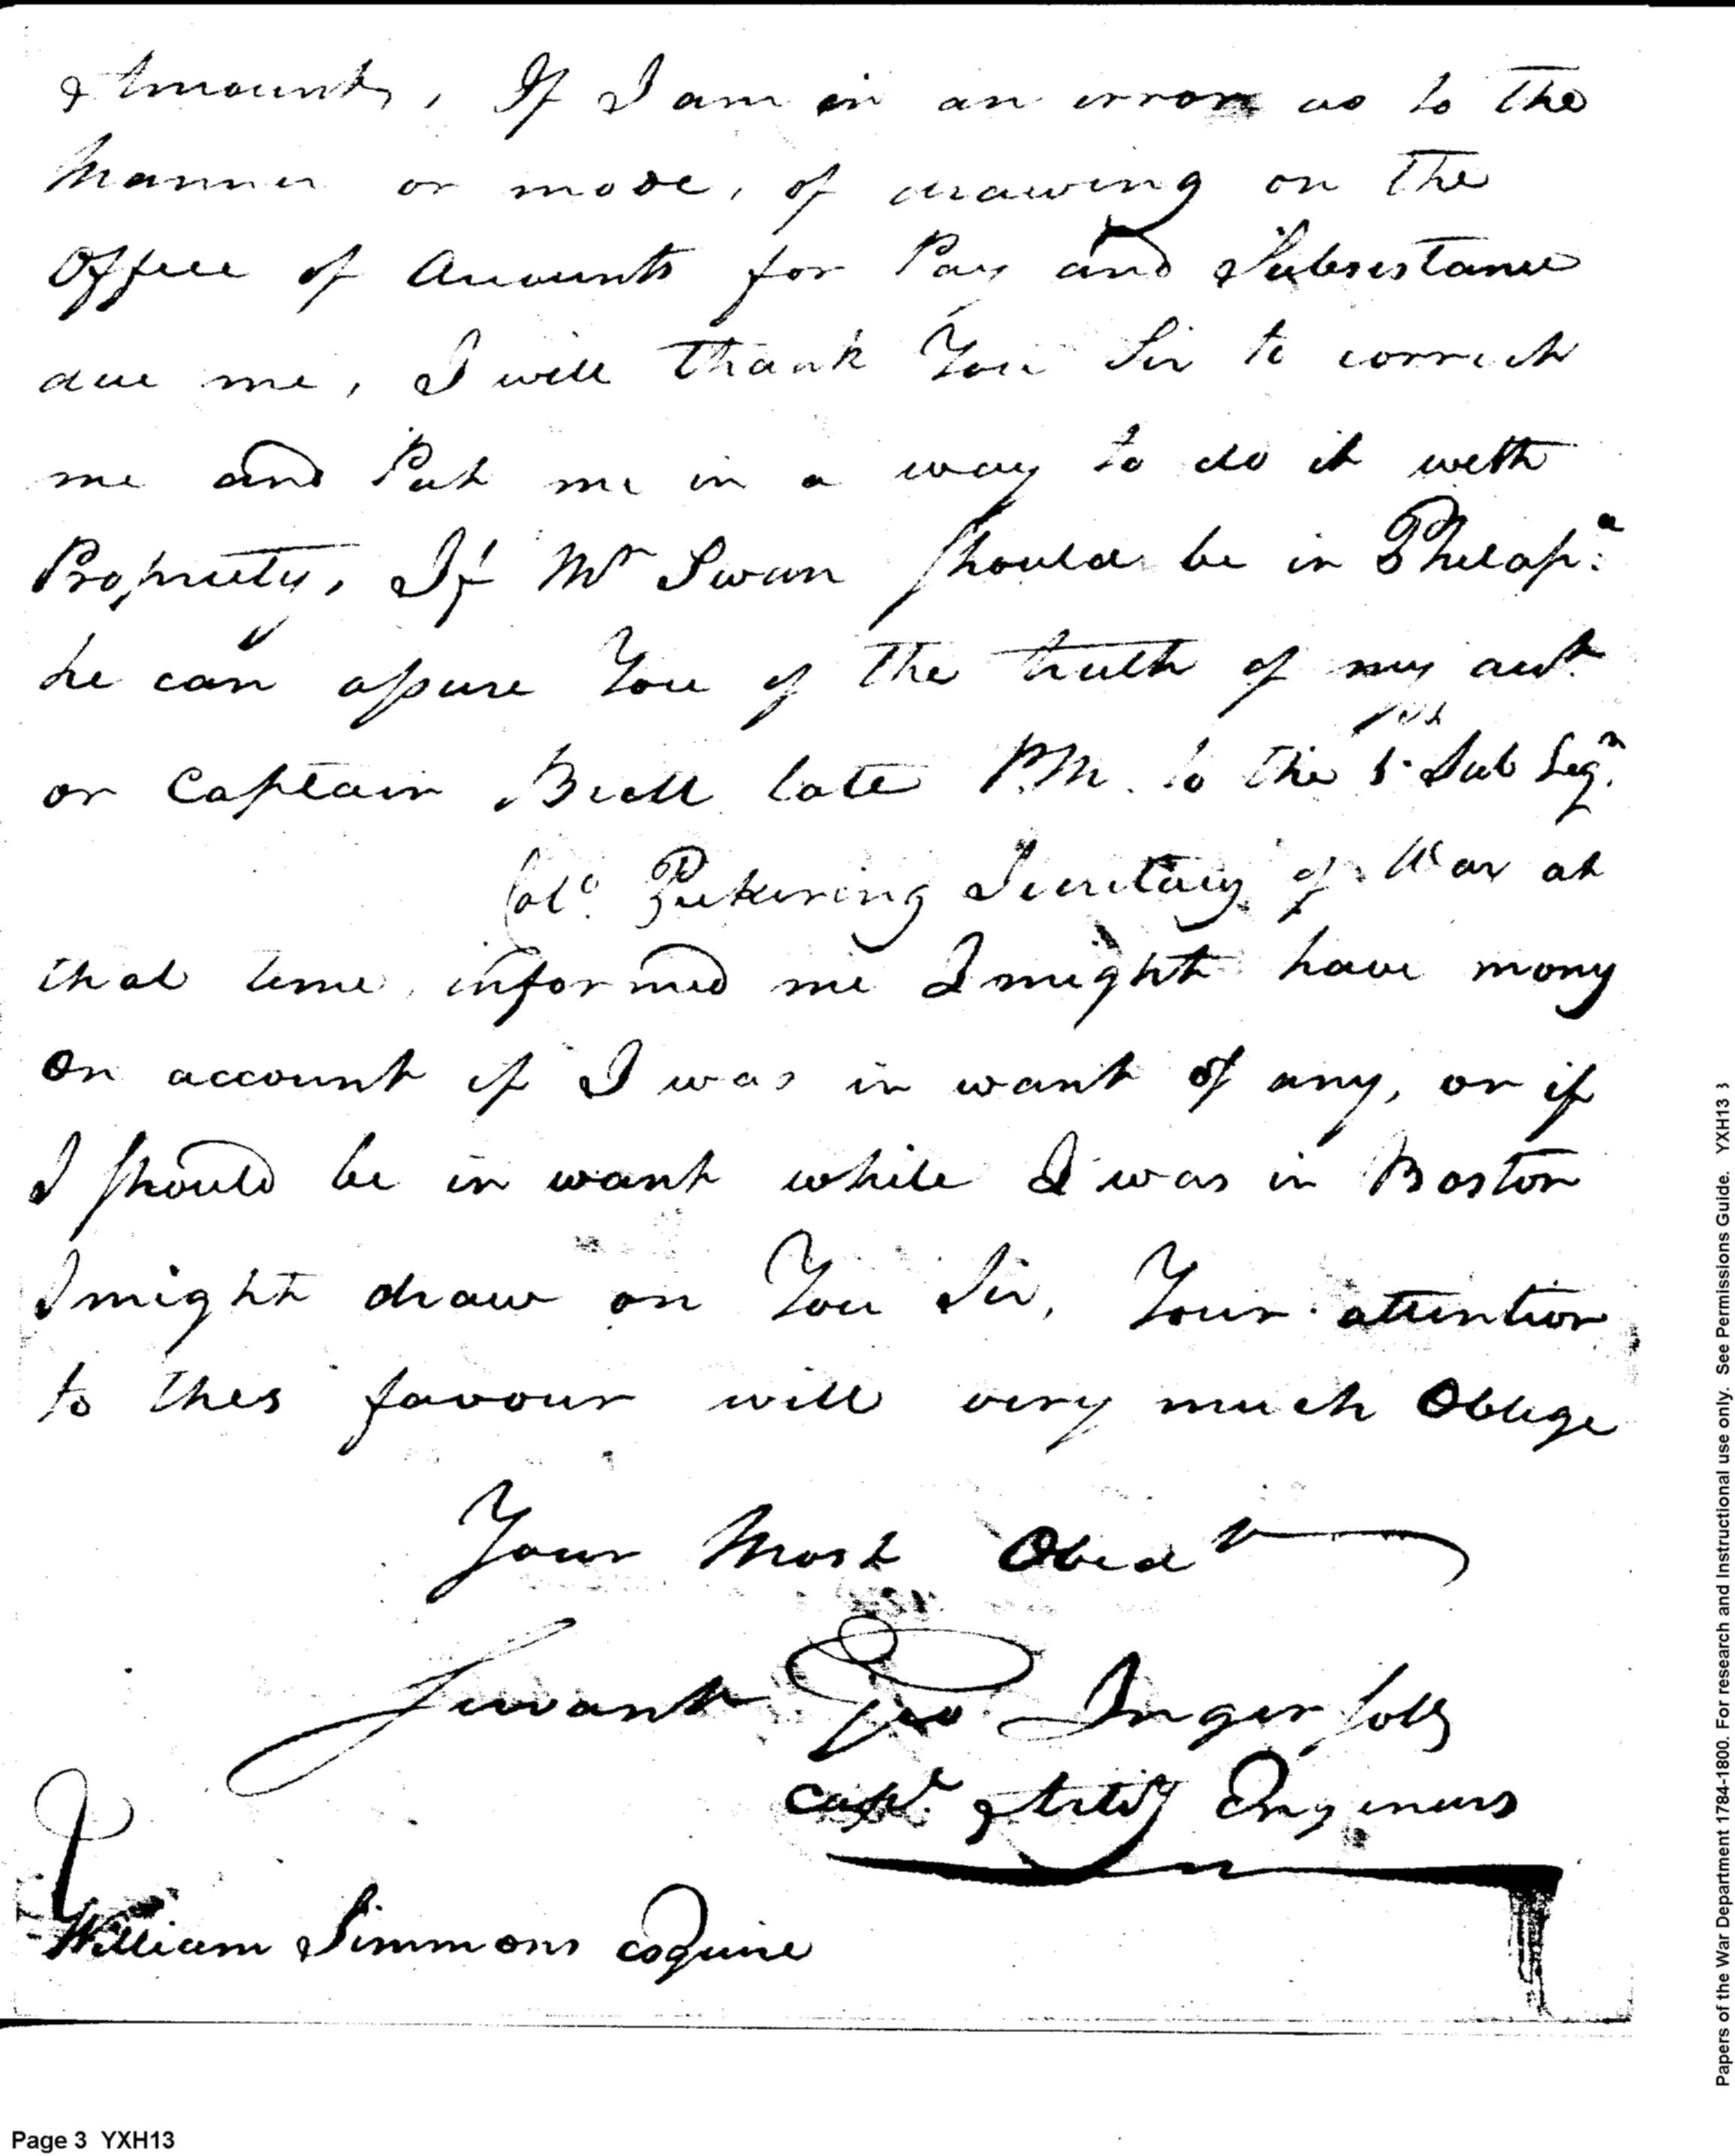 Amounts, If I am in an error as to the
Manner or mode, of drawing on the
Office of Accounts for Pay and Subsistance
due me, I will thank You Sir to correct
me and Put me in a way to do it with
Propriety, If Mr Swan should be in Philapa:
he can assure You of the truth of my act
or Captain Britt late P.M. to the 1st Sub Legn.
Colo. Pickering Secretary of War at
that time, informed me I might have mony
on account if I was in want of any, or if
I should be in want while I was in Boston
I might draw on You Sir, Your attention
to this favour will very much Oblige
Your Most Obedt
Servant Geo Ingersoll
Capt. Artily Engineers
William Simmons esquire
Page 3 YXH13
Papers of the War Department 1784-1800. For research and Instructional use only. See Permissions Guide. YXH13 3